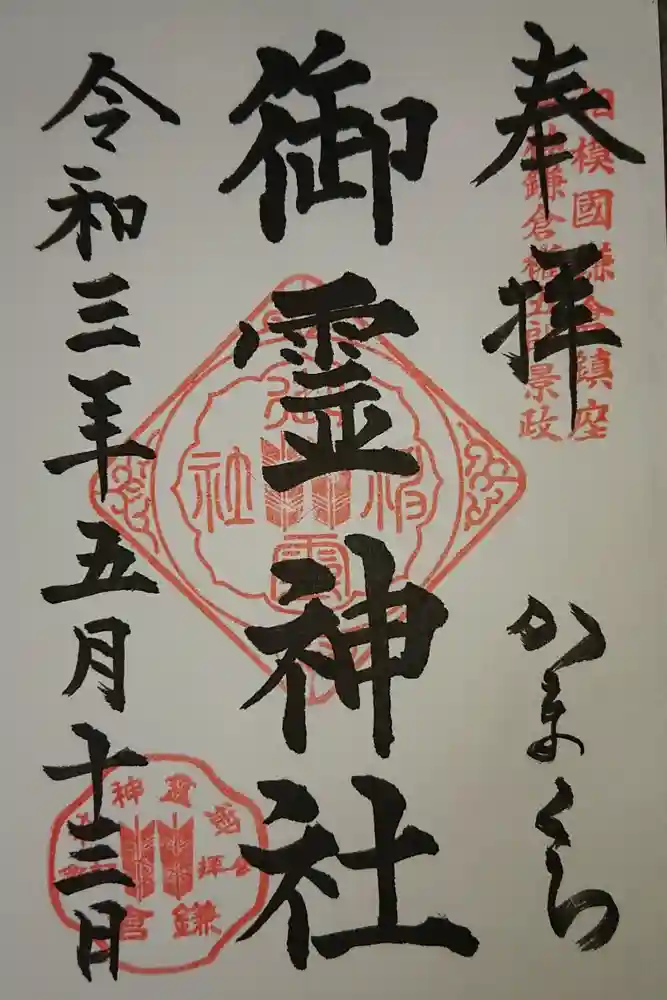 奉拝
かまくら
相模國鎌倉鎮座
鎌倉権五郎景政
御霊神社
御霊神社
令和三年五月十三日
鎌倉